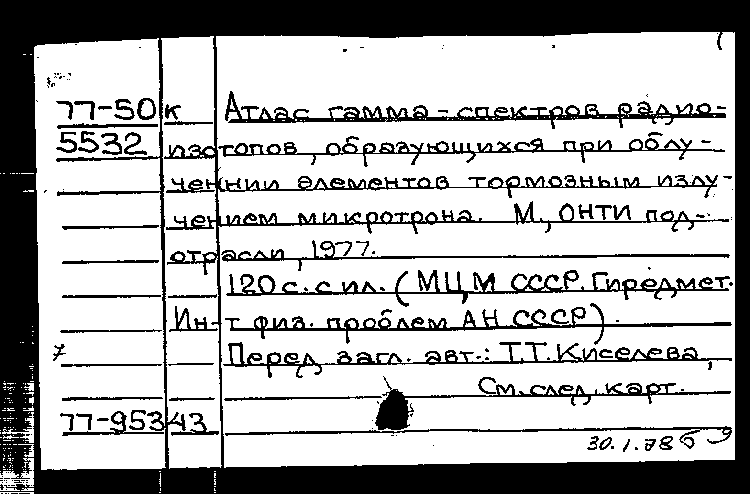 77-50 к Атлас гамма-спектров радио-
5532 изотопов, образующихся при облу-
ченнии элементов тормозным излу-
чением микротрона. М., ОНТИ под-
отрасли, 1977.
120 с. с ил. (МЦМ СССР. Гиредмет.
Ин-т физ. проблем АН СССР).
7 Перед загл. авт.: Т.Т. Киселева,
См. след. карт.
77-95343
30.1.78